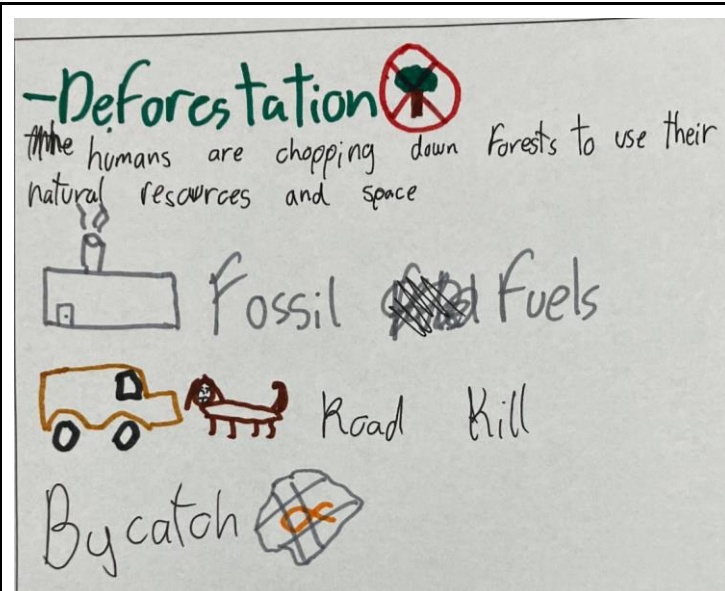 -Deforestation
The humans are chopping down forests to use their
natural resources and space
Fossil Fuels
Road Kill
By catch